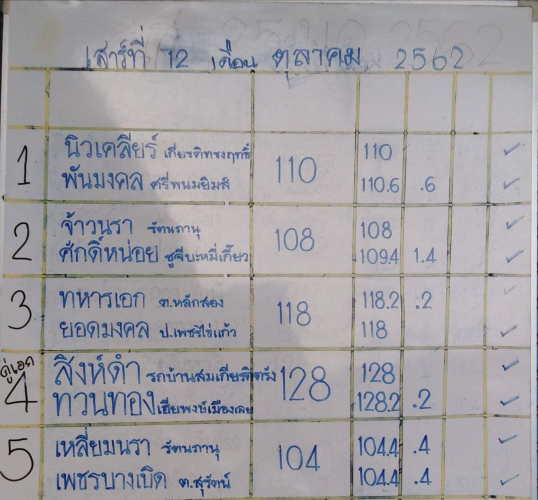 เสาร์ที่ 12 เดือน ตุลาคม 2562
1
นิวเคลียร์ เกียรติทรงฤทธิ์ 110 110
พันมงคล ศรีพนมยิมส์ 110.6 .6
2
จ้าวนรา รัตนภานุ 108 108
ศักดิ์หน่อย ชูจีบะหมี่เกี๊ยว 109.4 1.4
3
ทหารเอก ต.หลักสอง 118 118.2 .2
ยอดมงคล ป.เพชรไข่แก้ว 118
คู่เอก
4
สิงห์ดำ 128 128
ทวนทอง เฮียพงษ์เมืองเลย 128.2 .2
5
เหลี่ยมนรา รัตนภานุ 104 104.4 .4
เพชรบางเบิด ต.สุรัตน์ 104.4 .4